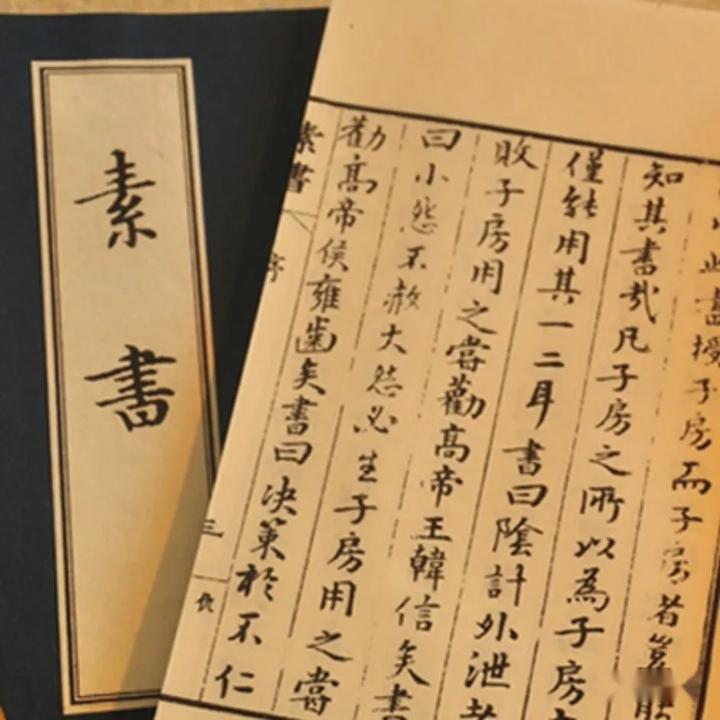 此書授子房而子房者豈能
知其書哉凡子房之所以為子房
僅能用其一二耳書曰陰計外泄者
敗子房用之嘗勸高帝王韓信矣書
曰小怨不赦大怨必生子房用之嘗
勸高帝侯雍齒矣書曰决策於不仁
素書
序
三
素書